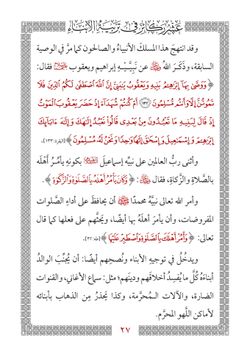 وقد انتهجَ هذا المسلكَ الأنبياءُ والصالحون كما مرَّ في الوصية
السابقة، وذكَرَ اللهُ ﷻ عن نَبِيَّيْهِ إبراهيم ويعقوب فقال:
﴿وَوَصَّىٰ بِهَآ إِبْرَٰهِـۧمُ بَنِيهِ وَيَعْقُوبُ يَٰبَنِىَّ إِنَّ ٱللَّهَ ٱصْطَفَىٰ لَكُمُ ٱلدِّينَ فَلَا
تَمُوتُنَّ إِلَّا وَأَنتُم مُّسْلِمُونَ ﴿١٣٢﴾ أَمْ كُنتُمْ شُهَدَآءَ إِذْ حَضَرَ يَعْقُوبَ ٱلْمَوْتُ
إِذْ قَالَ لِبَنِيهِ مَا تَعْبُدُونَ مِنۢ بَعْدِى قَالُوا۟ نَعْبُدُ إِلَٰهَكَ وَإِلَٰهَ ءَابَآئِكَ
إِبْرَٰهِـۧمَ وَإِسْمَٰعِيلَ وَإِسْحَٰقَ إِلَٰهًا وَٰحِدًا وَنَحْنُ لَهُۥ مُسْلِمُونَ﴾ [البقرة: ١٣٣].
وأثنى ربُّ العالمين على نبيِّه إسماعيلَ بكونِه يأمُرُ أهلَه
بالصَّلاةِ والزَّكاةِ، فقال: ﴿وَكَانَ يَأْمُرُ أَهْلَهُۥ بِٱلصَّلَوٰةِ وَٱلزَّكَوٰةِ﴾.
وأمر الله تعالى نبيَّه محمدًا ﷺ أن يحافظ على أداءِ الصَّلوات
المفروضات، وأن يأمرَ أهلَه بها أيضًا، ويحثَّهم على فعلها كما قال
تعالى: ﴿وَأْمُرْ أَهْلَكَ بِٱلصَّلَوٰةِ وَٱصْطَبِرْ عَلَيْهَا﴾
ويدخُلُ في توجيهِ الأبناءِ ونُصحِهم أيضًا: أن يُجنِّبَ الوالدُ
أبناءَهُ كُلَّ ما يُفسِدُ أخلاقَهم ودينَهم؛ مثل: سماع الأغاني، والقنوات
الضارة، والآلات المُحرَّمة، وكذا يُحذِّرُ من الذهاب بأبنائه
لأماكن اللَّهوِ المحرَّم.
٢٧